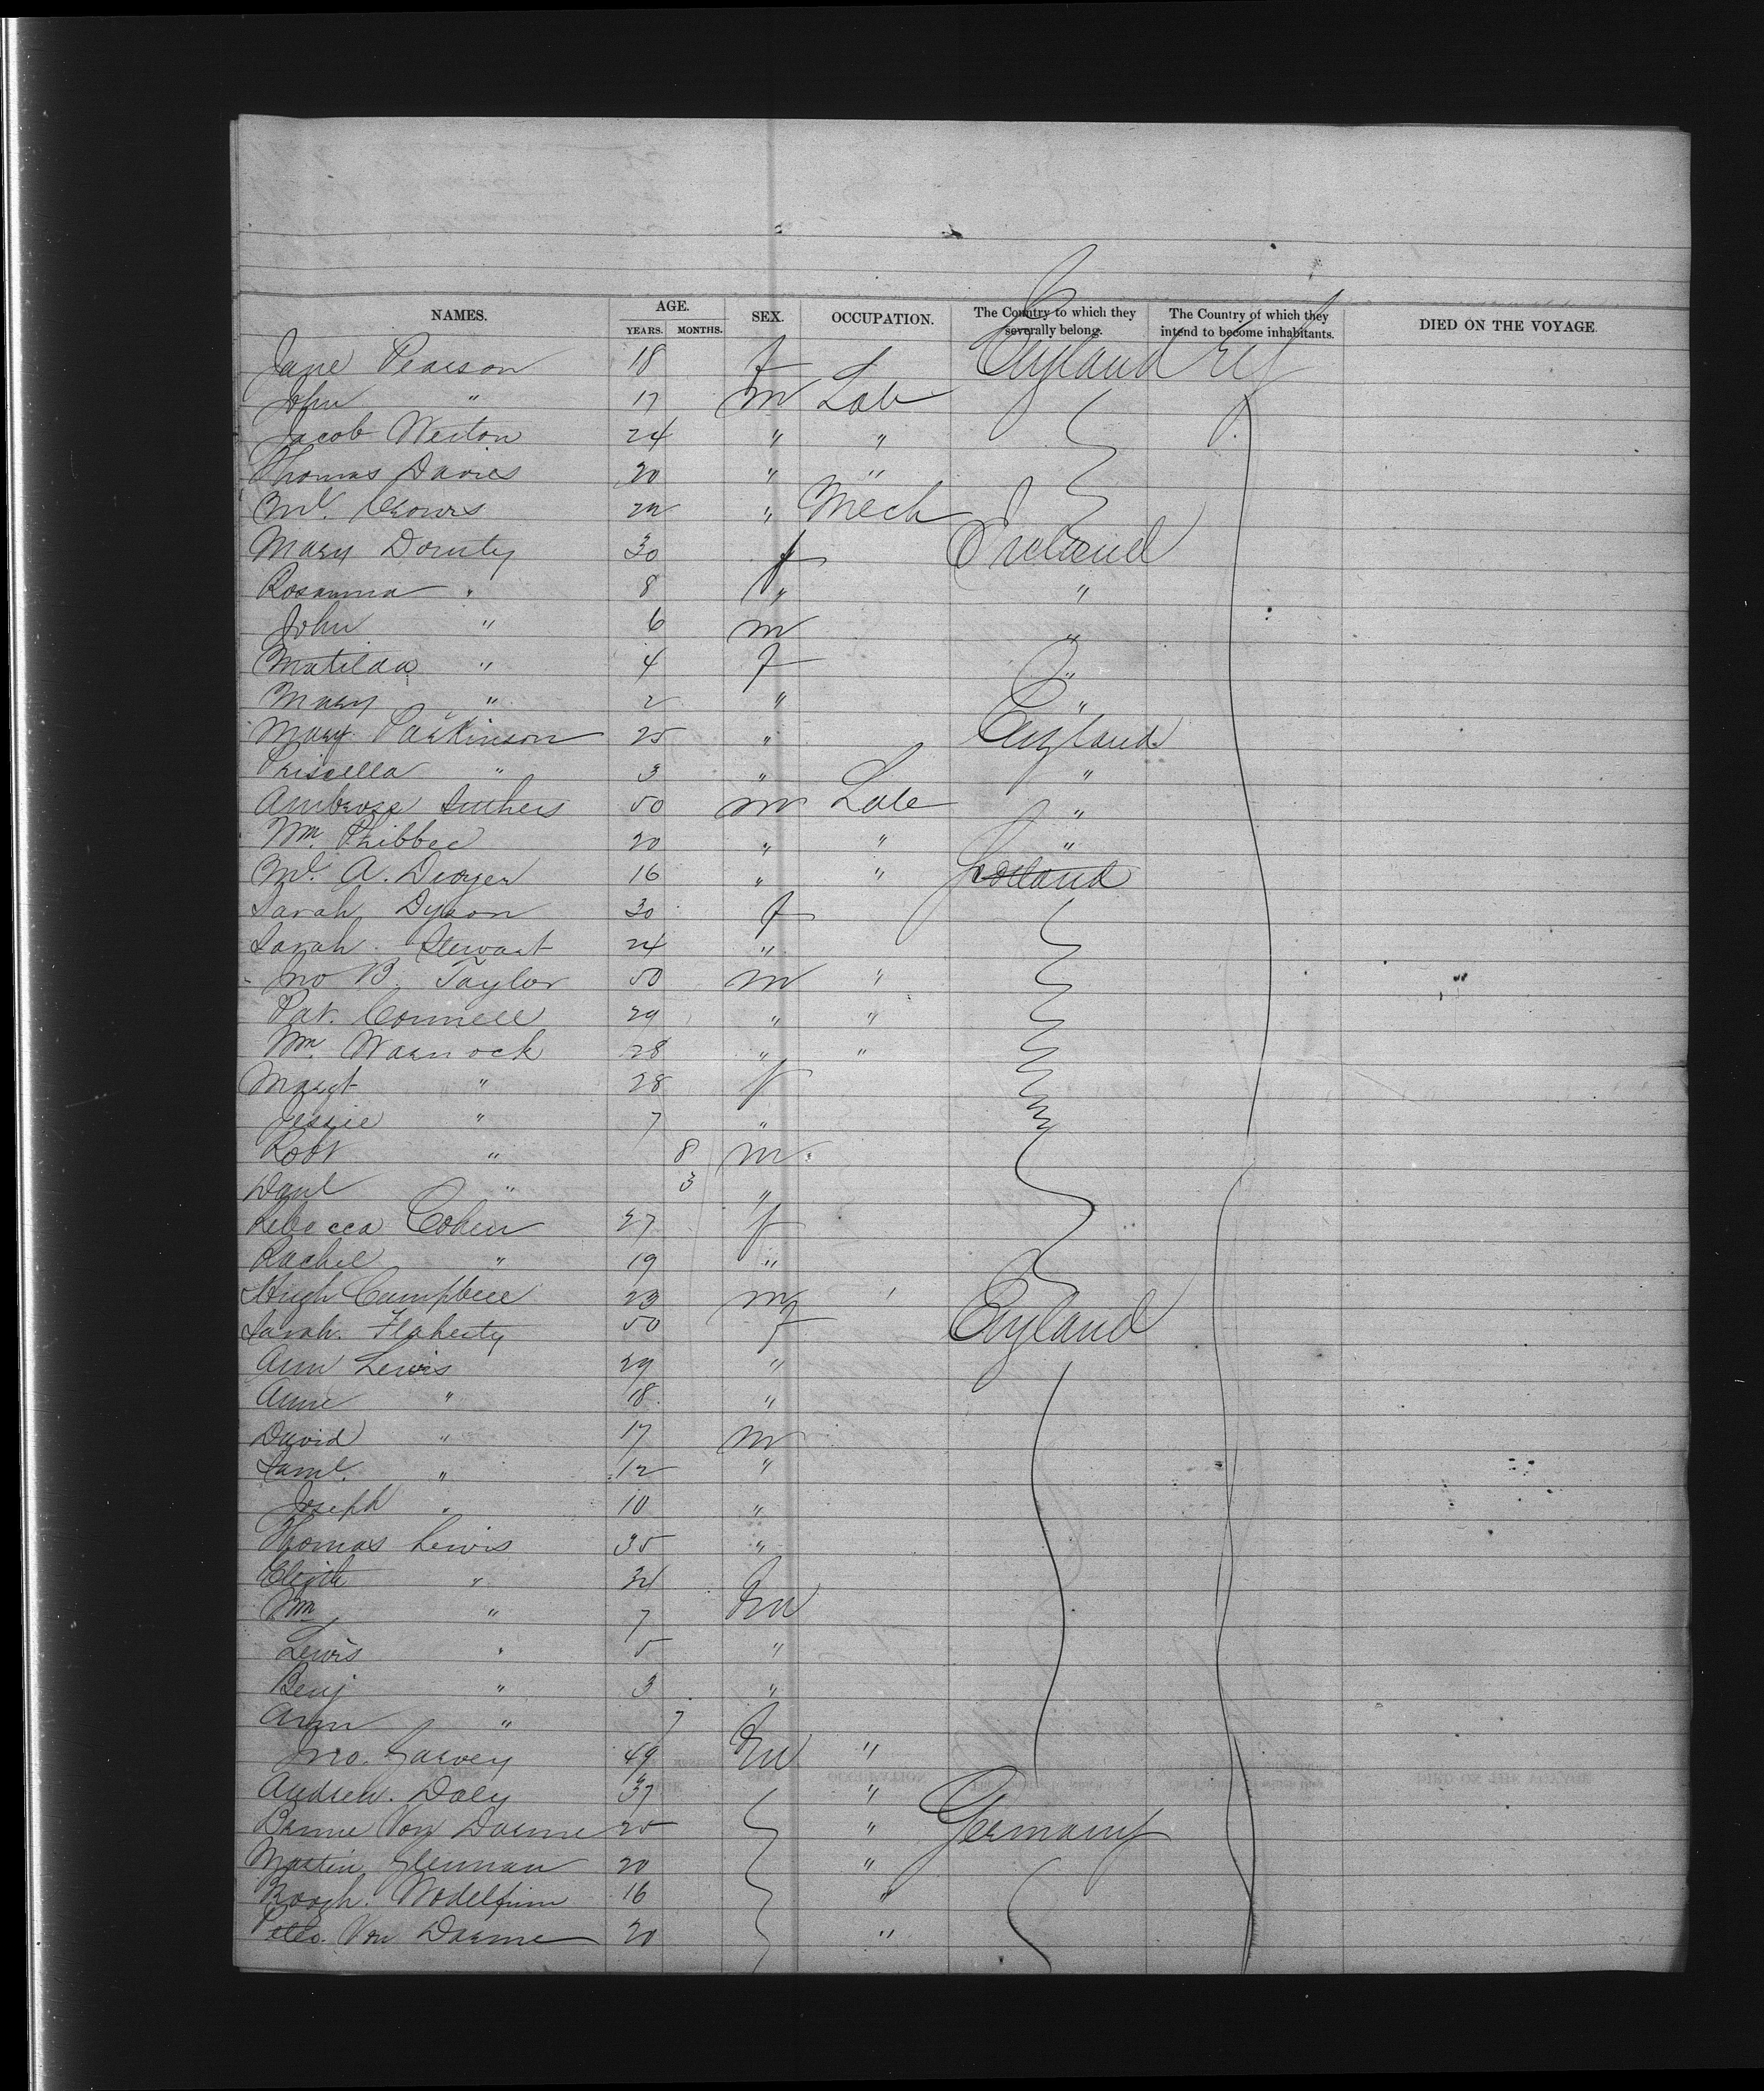 NAMES. AGE. YEARS. MONTHS. SEX. OCCUPATION. The Country to which they severally belong. The Country of which they intend to become inhabitants. DIED ON THE VOYAGE.
Jane Pearson 18 f England
John " 17 m Lab
Jacob Weston 24 " "
Thomas Davies 20 " "
Ml. " Mech
Mary Dounty 30 f Ireland
Rosanna " 8 " "
John " 6 m "
Matilda " 4 f "
Mary " 2 " "
Mary Parkinson 25 " England
Priscella " 3 " "
Ambrose 50 m Lab "
Wm. Phibbee 20 " " "
Ml. A. Dwyer 16 " " Scotland
Sarah Dyson 30 f
Sarah Stewart 24 "
Jno B. Taylor 50 m "
Pat. Connell 29 " "
Wm. Warnock 28 " "
Margt " 28 f
Jessie " 7 "
Robt " 8 m
Danl " 3 "
Rebecca Cohen 27 f
Rachel " 19 "
Hugh Campbell 23 m '
Sarah Flaherty 50 f England
Ann Lewis 29 "
Anne " 18 "
David " 17 m
Saml. " 12 "
Joseph " 10 "
Thomas Lewis 35 "
Elizth " 34
Wm " 7 m
Lewis " 5 "
Benj " 3 "
Ann " 7
Jno. Garvey 49 m "
Andrew Daly 37 "
Von Daeme 25 " Germany
Martin Glennan 20 "
16 "
Von Daeme 20 "